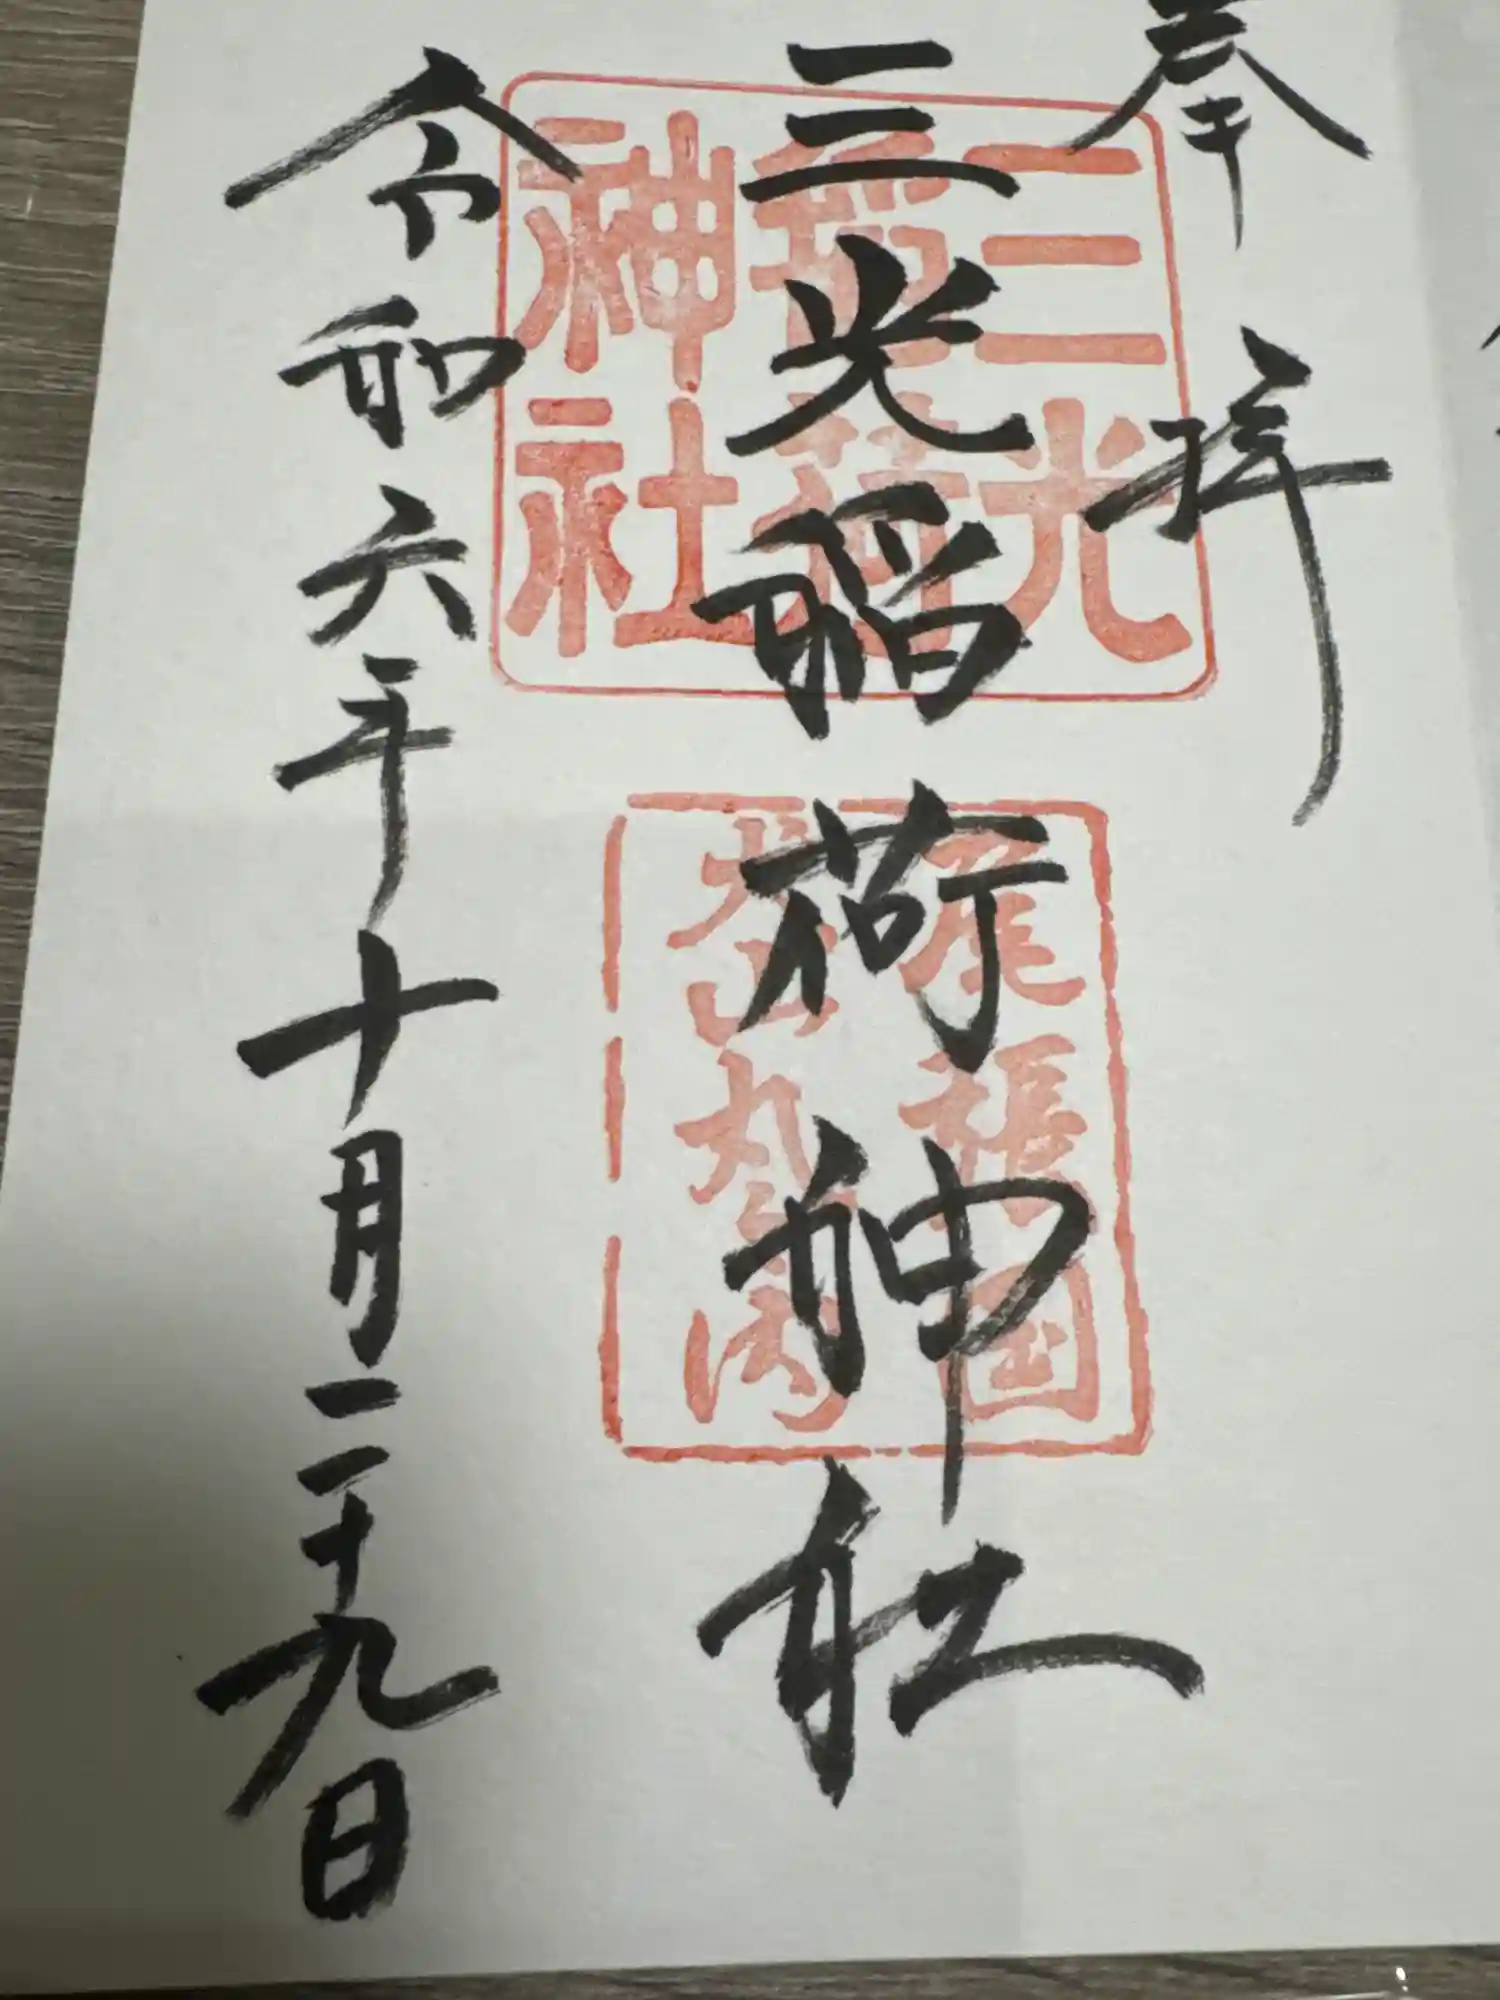 奉拝
三光稲荷神社
令和六年十月二十九日
三光
稲荷
神社
尾張国
犬山丸之内